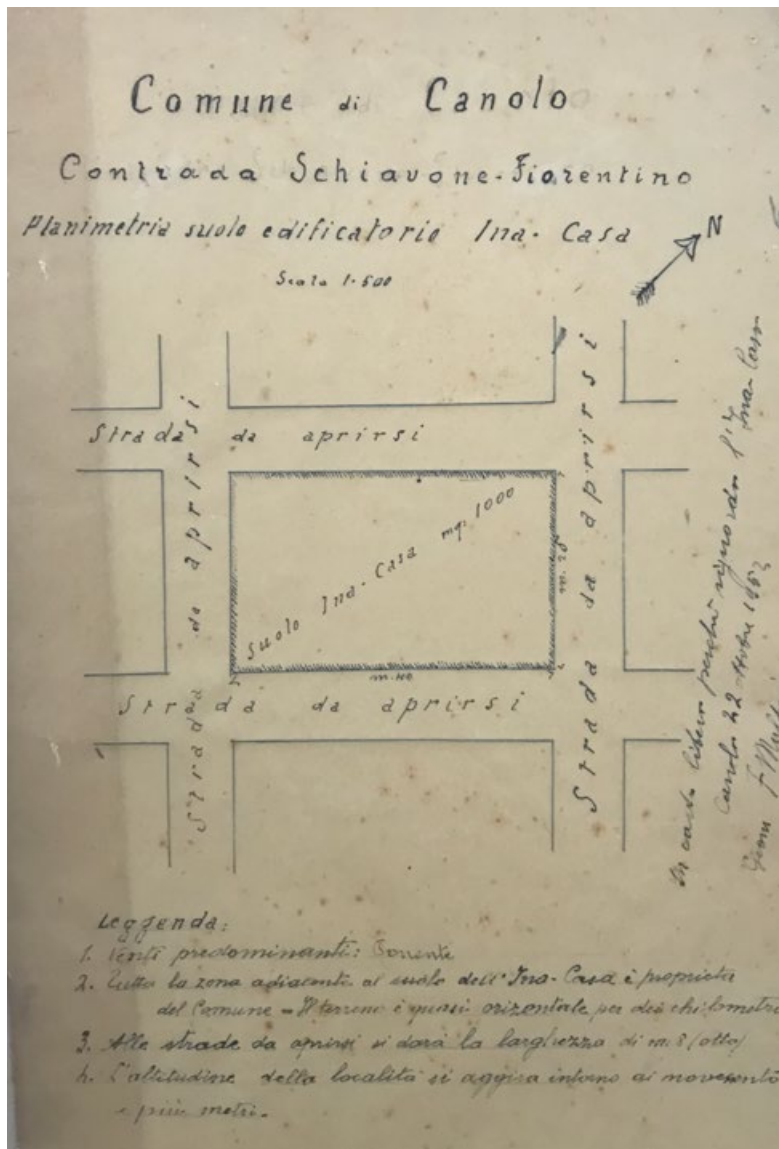 Comune di Canolo
Contrada Schiavone-Fiorentino
Planimetria suolo edificatorio Ina-Casa
Scala 1-500
N
Strada da aprirsi
Strada da aprirsi
Strada da aprirsi
Suolo Ina-Casa mq. 1000
m. 25
m. 40
Strada da aprirsi
In carta libera perché riguarda l'Ina-Casa
Canolo 22
Leggenda:
1. Venti predominanti:
2. Tutta la zona adiacente al suolo dell'Ina-Casa è proprietà
del Comune - Il terreno è quasi orizontale per dei chilometri
3. Alle strade da aprirsi si darà la larghezza di m. 8 (otto)
4. L'altitudine della località si aggira intorno ai novecento
e più metri.